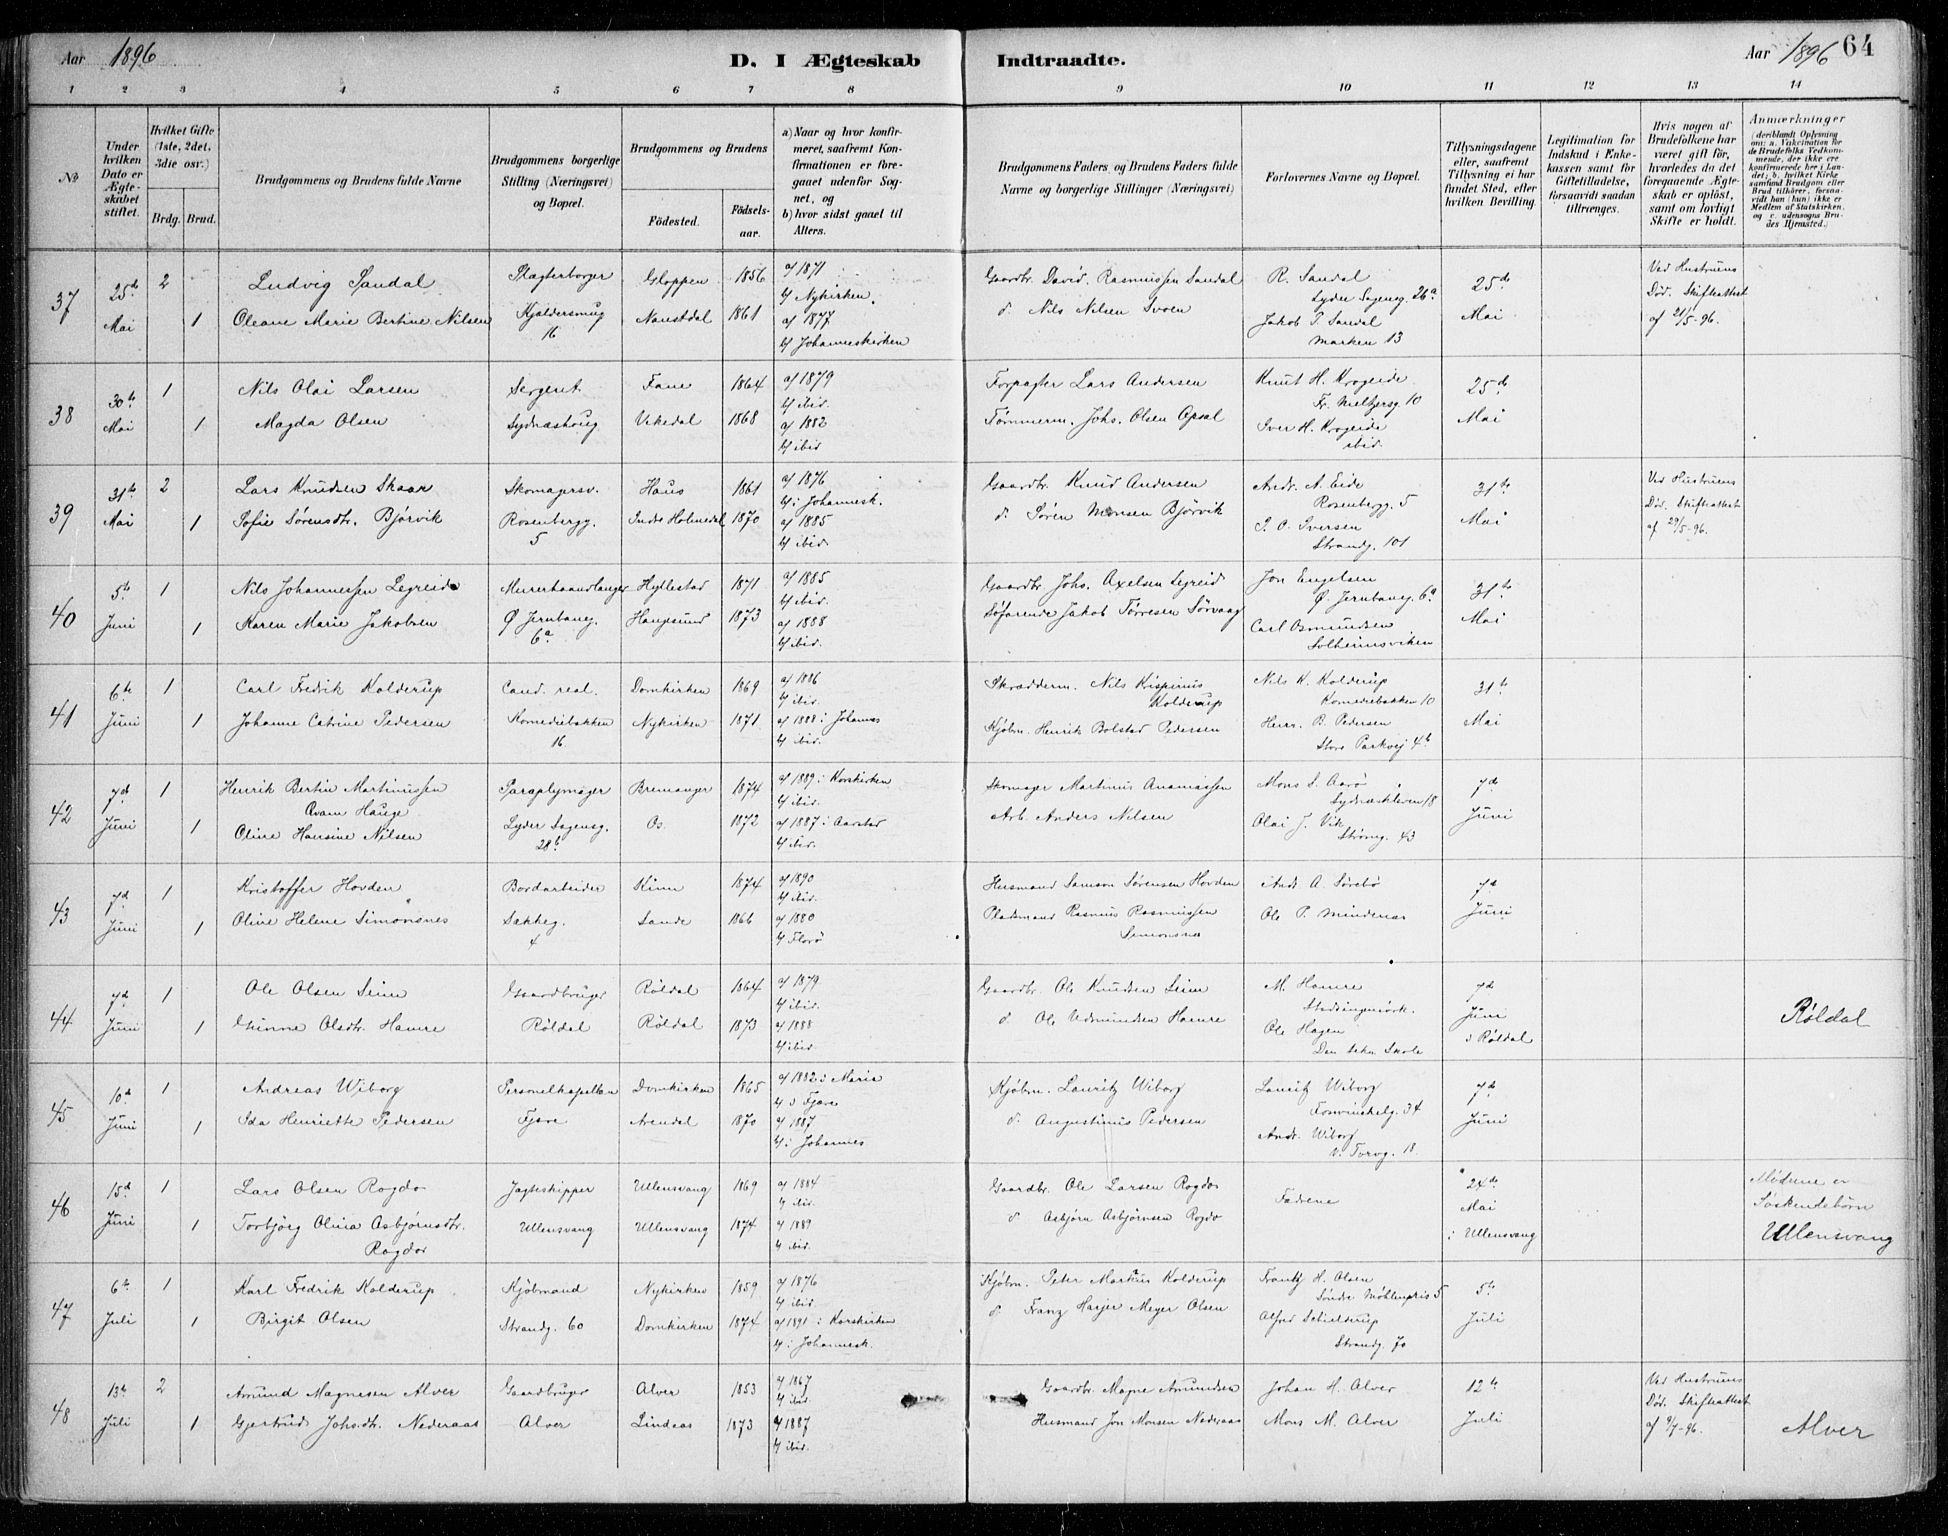 Aar 1896 D. I Ægteskab Indtraadte. Aar 1896 64
1 2 3 4 5 6 7 8 9 10 11 12 13 14
№
Under hvilken Dato er Ægteskabet stiftet.
Hvilket Gifte (1ste, 2det, 3die osv.)
Brdg. Brud.
Brudgommens og Brudens fulde Navne
Brudgommens borgerlige Stilling (Næringsvei) og Bopæl.
Brudgommens og Brudens
Födested. Födselsaar.
a) Naar og hvor konfirmeret, saafremt Konfirmationen er foregaaet udenfor Sognet, og
b) hvor sidst gaaet til Alters.
Brudgommens Faders og Brudens Faders fulde Navne og borgerlige Stillinger (Næringsvei)
Forlovernes Navne og Bopæl.
Tillysningsdagene eller, saafremt Tillysning ei har fundet Sted, efter hvilken Bevilling.
Legitimation for Indskud i Enkekassen samt for Giftetilladelse, forsaavidt saadan tiltrænges.
Hvis nogen af Brudefolkene har været gift för, hvorledes da det foregaaende Ægteskab er oplöst, samt om lovligt Skifte er holdt.
Anmærkninger
(deriblandt Oplysning om: a. Vaccination for de Brudefolks Vedkommende, der ikke ere konfirmerede her i Landet; b. hvilket Kirkesamfund Brudgom eller Brud tilhörer, forsaavidt han (hun) ikke er Medlem af Statskirken, og c. udensogns Brudes Hjemsted.)
37 25de Mai 2 Ludvig Sandal Slagterborger Gloppen 1856 a/ 1871 Gaardbr. David Rasmussen Sandal R. Sandal 25de Ved Hustruens
b/ Nykirken. Lyder Sagensg. 26a Død. Skifteattest
1 Oleane Marie Bertine Nilsen Kjeldersmug 16 Naustdal 1861 a/ 1877 d. Nils Nilsen Svoen Jakob P. Sandal Mai af 21/5-96.
b/ Johanneskirken Marken 13
38 30te Mai 1 Nils Olai Larsen Sergent Fane 1864 a/ 1879 Forpagter Lars Andersen Knut H. Krogeide 25de
b/ ibid. Fr. Meltzersg. 10
1 Magda Olsen Sydnæshaug Vikedal 1868 a/ 1882 Tømmerm. Johs. Olsen Opsal Iver H. Krogeide Mai
b/ ibid ibid.
39 31te Mai 2 Lars Knudsen Skaar Skomagersv. Haus 1861 a/ 1876 Gaardbr. Knud Andersen Andr. A. Eide 31te Ved Hustruens
b/ i Johannesk. Rosenbergg. 5 Død. Skifteattest
1 Sofie Sørensdtr. Bjørvik Rosenbergg. 5 Indre Holmedal 1870 a/ 1885 d. Søren Monsen Bjørvik P. O. Iversen Mai af 29/5-96.
b/ ibid. Strandg. 101
40 5te Juni 1 Nils Johannessen Legreid Murerhaandlanger Hyllestad 1871 a/ 1885 Gaardbr. Johs. Axelsen Legreid Jon Engelsen 31te
b/ ibid. Ø. Jernbaneg. 6a
1 Karen Marie Jakobsen Ø Jernbaneg. 6a Haugesund 1873 a/ 1888 Søfarende Jakob Tørresen Sørvaag Carl Osmundsen Mai
b/ ibid. Solheimsviken
41 6te Juni 1 Carl Fredrik Kolderup Cand. real. Domkirken 1869 a/ 1886 Skrædderm. Nils Krispinus Kolderup Nils K. Kolderup 31te
b/ ibid. Komediebakken 10
1 Johanne Catrine Pedersen Komediebakken 16 Nykirken 1871 a/ 1888 i Johannes Kjøbm. Henrik Bolstad Pedersen Herm. B. Pedersen Mai
b/ ibid. Store Parkvej 4b
42 7de Juni 1 Henrik Bertin Martinussen Paraplymager Bremanger 1874 a/ 1889 i Korskirken Skomager Martinus Ananiassen Mons S. Aarø 7de
Qvam Hauge b/ ibid. Sydnæskleven 18
1 Oline Hansine Nilsen Lyder Sagensg. 28b Os 1872 a/ 1887 i Aarstad Arb. Anders Nilsen Olai J. Vik Juni
b/ ibid. Strømg. 43
43 7de Juni 1 Kristoffer Hovden Bordarbeider Kinn 1874 a/ 1890 Husmand Samson Sørensen Hovden Andr. A. Sørebø 7de
b/ ibid.
1 Oline Helene Simonsnes Sækkeg. 4 Sande 1866 a/ 1880 Pladsmand Rasmus Rasmussen Simonsnes Ole P. Mindenes Juni
b/ Florø
44 7de Juni 1 Ole Olsen Seim Gaardbruger Røldal 1864 a/ 1879 Gaardbr. Ole Knudsen Seim M. Hamre 7de
b/ ibid. Stadsingeniørk.
1 Gunne Olsdtr. Hamre Røldal Røldal 1873 a/ 1888 d. Ole Udmundsen Hamre Ole Hagen Juni i Røldal Røldal
b/ ibid. Den tekn Skole
45 10de Juni 1 Andreas Wiborg Personelkapellan Domkirken 1865 a/ 1882 i Marie Kjøbm. Lauritz Wiborg Lauritz Wiborg 7de
b/ i Fjære Fosvinckelg. 34
1 Ida Henriette Pedersen Fjære Arendal 1870 a/ 1887 d. Augustinus Pedersen Andr. Wiborg Juni
b/ i Johannes V. Torvg. 18
46 15de Juni 1 Lars Olsen Rogdo Jagteskipper Ullensvang 1869 a/ 1884 Gaardbr. Ole Larsen Rogdo Fædrene 24de Mødrene er
b/ ibid. Mai Søskendebørn
1 Torbjørg Olina Asbjørnsdtr. Rogdo Ullensvang Ullensvang 1874 a/ 1889 d. Asbjørn Asbjørnsen Rogdo i Ullensvang Ullensvang
b/ ibid.
47 6te Juli 1 Karl Fredrik Kolderup Kjøbmand Nykirken 1859 a/ 1876 Kjøbm. Peter Markus Kolderup Frantz H. Olsen 5te
b/ ibid. Søndre Møhlenpris 5
1 Birgit Olsen Strandg. 60 Domkirken 1874 a/ 1891 i Korskirken d. Franz Harjer Meyer Olsen Alfred Schieldrup Juli
b/ i Johannesk. Strandg. 70
48 13de Juli 2 Amund Magnesen Alver Gaardbruger Alver 1853 a/ 1867 Gaardbr. Magne Amundsen Johan H. Alver 12te Ved Hustruens
b/ ibid. Død. Skifteattest
1 Gjertrud Johs.dtr. Nederaas Alver Lindaas 1873 a/ 1887 Husmand Jon Monsen Nederaas Mons M. Alver Juli af 9/7-96. Alver
b/ ibid.